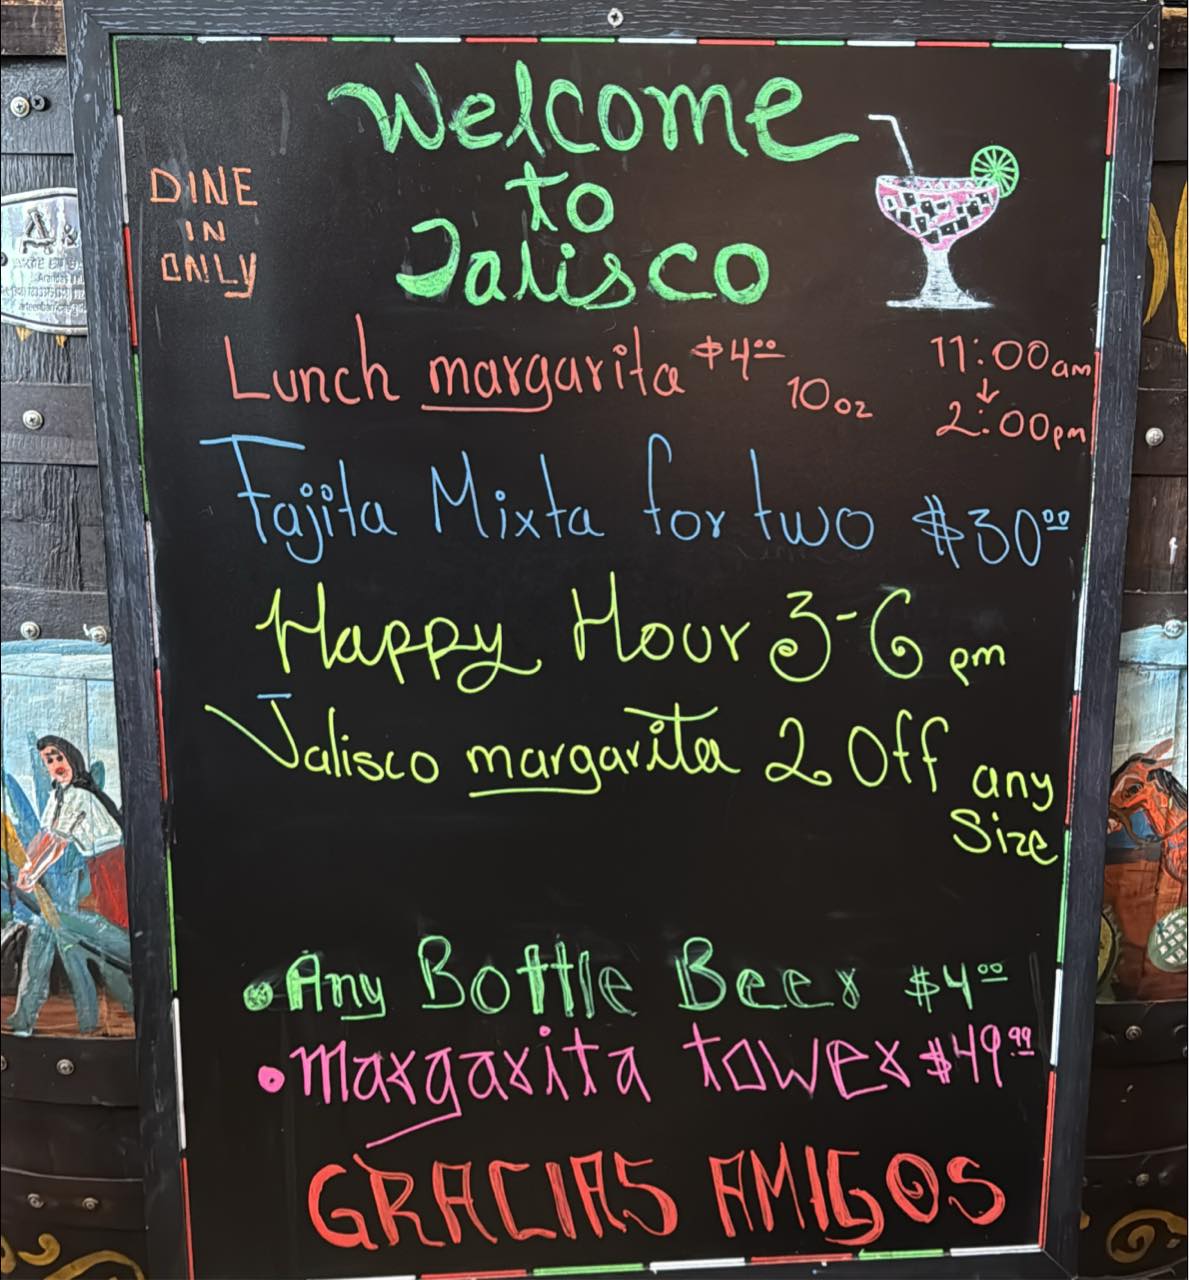 Welcome
to
Jalisco
DINE
IN
ONLY
Lunch margarita $4.00 10oz
11:00am
2:00pm
Fajita Mixta for two $30.00
Happy Hour 3-6 pm
Jalisco margarita 2 Off any
Size
Any Bottle Beer $4.00
margarita tower $49.99
GRACIAS AMIGOS